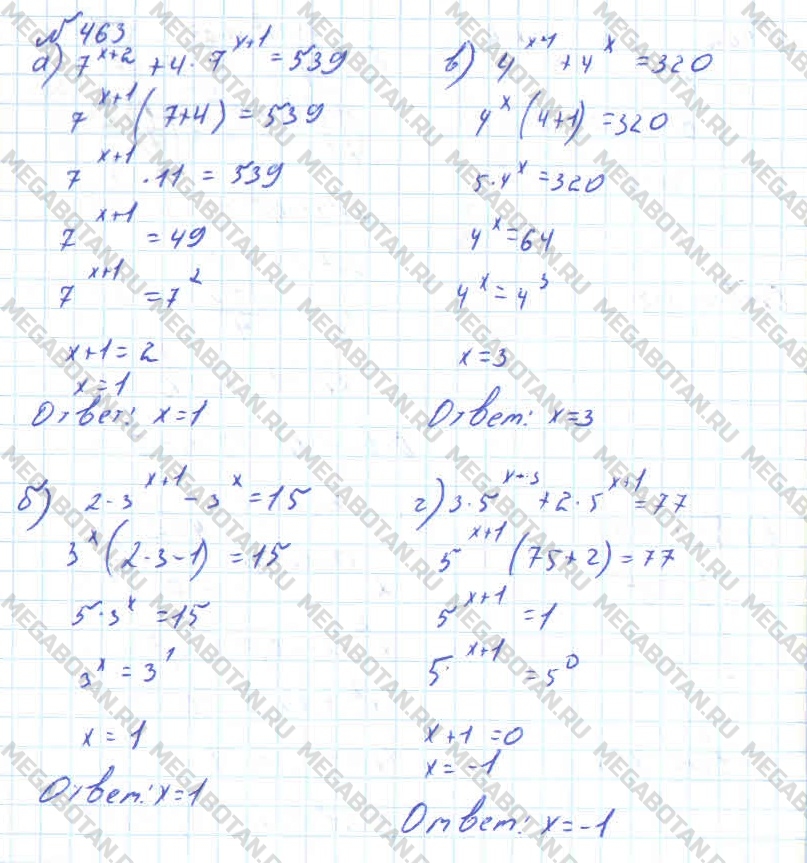 № 463
а) 7^{x+2} + 4 · 7^{x+1} = 539
7^{x+1} (7+4) = 539
7^{x+1} · 11 = 539
7^{x+1} = 49
7^{x+1} = 7^2
x+1 = 2
x = 1
Ответ: x = 1
б) 2 · 3^{x+1} - 3^x = 15
3^x (2 · 3 - 1) = 15
5 · 3^x = 15
3^x = 3^1
x = 1
Ответ: x = 1
в) 4^{x+1} + 4^x = 320
4^x (4+1) = 320
5 · 4^x = 320
4^x = 64
4^x = 4^3
x = 3
Ответ: x = 3
г) 3 · 5^{x+3} + 2 · 5^{x+1} = 77
5^{x+1} (75+2) = 77
5^{x+1} = 1
5^{x+1} = 5^0
x+1 = 0
x = -1
Ответ: x = -1
MEGABOTAN.RU